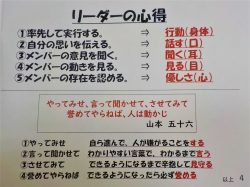 リーダーの心得
①率先して実行する。 ⇒ 行動(身体)
②自分の思いを伝える。 ⇒ 話す(口)
③メンバーの意見を聞く。 ⇒ 聞く(耳)
④メンバーの動きを見る。 ⇒ 見る(目)
⑤メンバーの存在を認める。 ⇒ 優しさ(心)
やってみせ、言って聞かせて、させてみて
誉めてやらねば、人は動かじ
山本 五十六
①やってみせ 自ら進んで、人が嫌がることをする
②言って聞かせて わかりやすい言葉で、わかるまで言う
③させてみて できるようになるまで辛抱して見守る
④誉めてやらねば できるようになったら必ず誉める
4